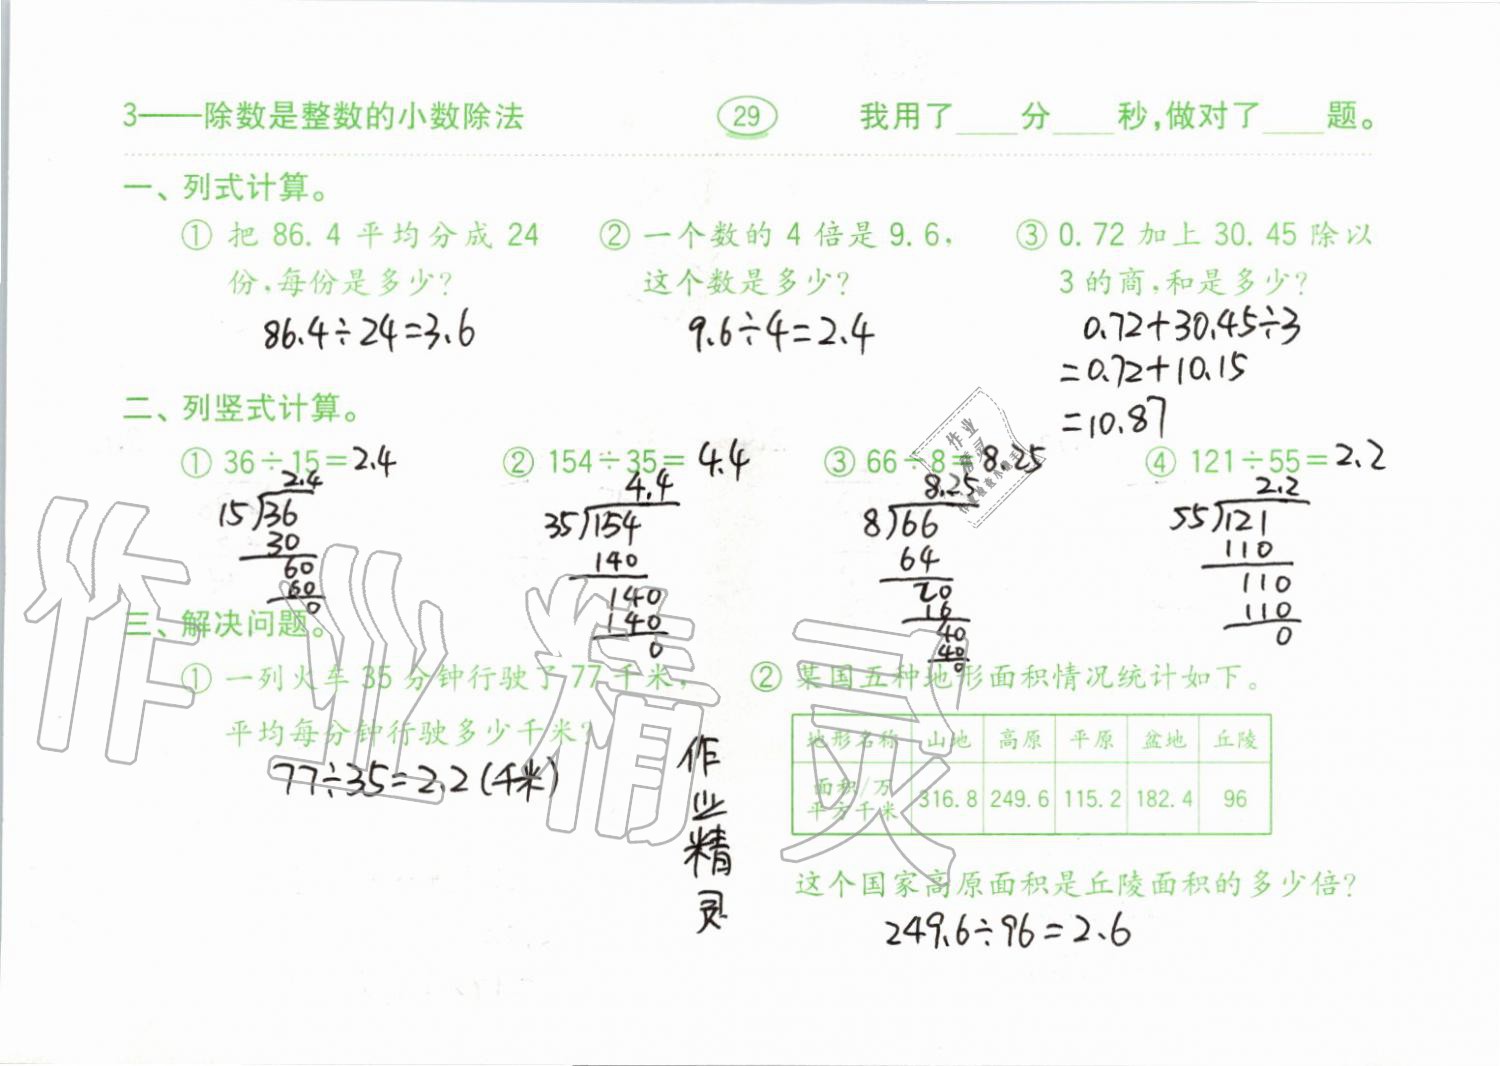 3——除数是整数的小数除法 29 我用了____分____秒,做对了____题。
一、列式计算。
① 把 86.4 平均分成 24 份,每份是多少?
86.4÷24=3.6
② 一个数的 4 倍是 9.6,这个数是多少?
9.6÷4=2.4
③ 0.72 加上 30.45 除以 3 的商,和是多少?
0.72+30.45÷3
=0.72+10.15
=10.87
二、列竖式计算。
① 36÷15=2.4
2.4
15)36
30
60
60
0
② 154÷35=4.4
4.4
35)154
140
140
140
0
③ 66÷8=8.25
8.25
8)66
64
20
16
40
40
0
④ 121÷55=2.2
2.2
55)121
110
110
110
0
三、解决问题。
① 一列火车 35 分钟行驶了 77 千米,
平均每分钟行驶多少千米?
77÷35=2.2(千米)
② 某国五种地形面积情况统计如下。
地形名称 山地 高原 平原 盆地 丘陵
面积/万平方千米 316.8 249.6 115.2 182.4 96
这个国家高原面积是丘陵面积的多少倍?
249.6÷96=2.6
作业精灵
作业精灵